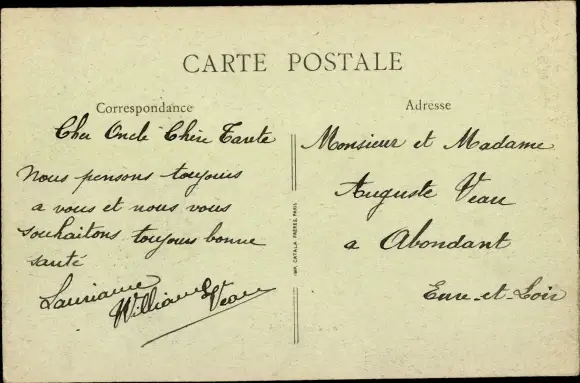 CARTE POSTALE
Correspondance
Adresse
Cher Oncle Chère Tante
Nous pensons toujours
a vous et nous vous
souhaitons toujours bonne
santé
William Veau
Monsieur et Madame
Auguste Veau
a Abondant
Eure-et-Loir
IMP. CATALA FRÈRES, PARIS